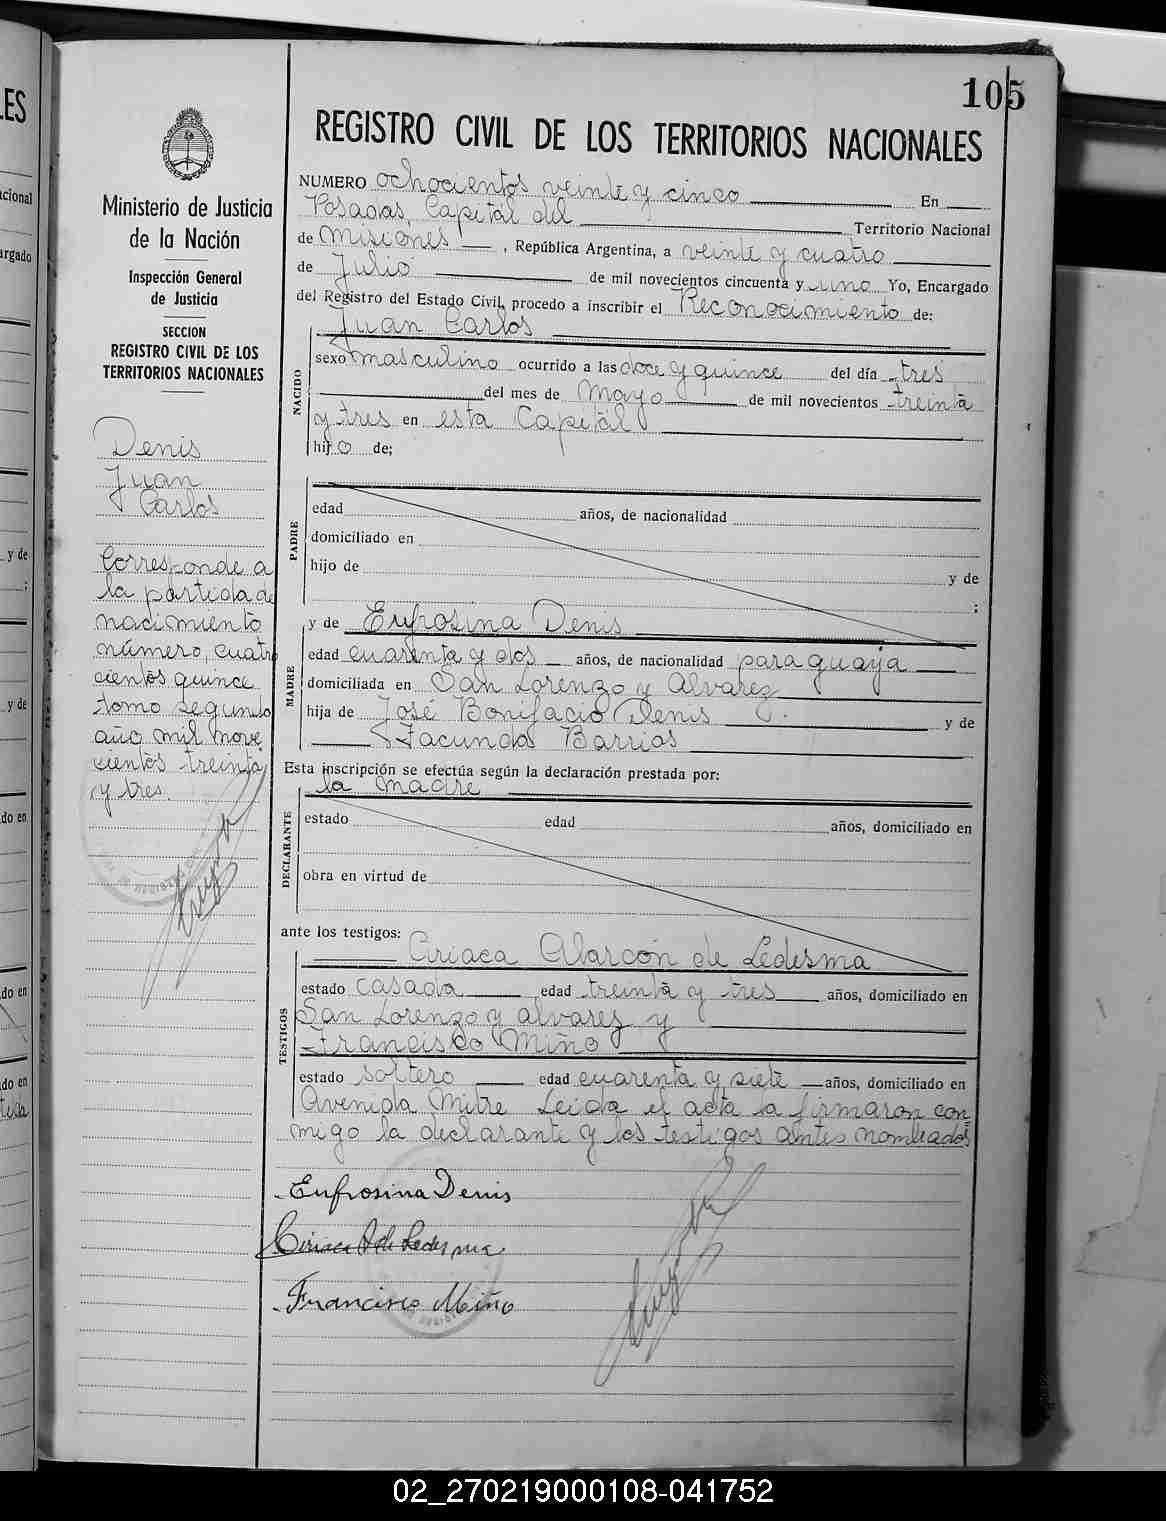 105
REGISTRO CIVIL DE LOS TERRITORIOS NACIONALES
Ministerio de Justicia
de la Nación
Inspección General
de Justicia
SECCION
REGISTRO CIVIL DE LOS
TERRITORIOS NACIONALES
Denis
Juan
Carlos
Corresponde a
la partida de
nacimiento
número, cuatro
cientos quince
tomo segundo
año mil nove
cientos treinta
y tres.
NUMERO ochocientos veinte y cinco En
Posadas, Capital del Territorio Nacional
de Misiones, República Argentina, a veinte y cuatro
de Julio de mil novecientos cincuenta y uno Yo, Encargado
del Registro del Estado Civil, procedo a inscribir el Reconocimiento de:
Juan Carlos
NACIDO
sexo masculino ocurrido a las doce y quince del día tres
del mes de Mayo de mil novecientos treinta
y tres en esta Capital
hijo de;
PADRE
edad años, de nacionalidad
domiciliado en
hijo de y de
;
y de Eufrosina Denis
MADRE
edad cuarenta y dos años, de nacionalidad paraguaya
domiciliada en San Lorenzo y Alvarez
hija de José Bonifacio Denis y de
Facunda Barrios
Esta inscripción se efectúa según la declaración prestada por:
la madre
DECLARANTE
estado edad años, domiciliado en
obra en virtud de
ante los testigos:
Ciriaca Alarcón de Ledesma
TESTIGOS
estado casada edad treinta y tres años, domiciliado en
San Lorenzo y alvarez y
Francisco Miño
estado soltero edad cuarenta y siete años, domiciliado en
Avenida Mitre Leida el acta la firmaron con
migo la declarante y los testigos antes nombrados
Eufrosina Denis
Ciriaca A de Ledesma
Francisco Miño
02_270219000108-041752